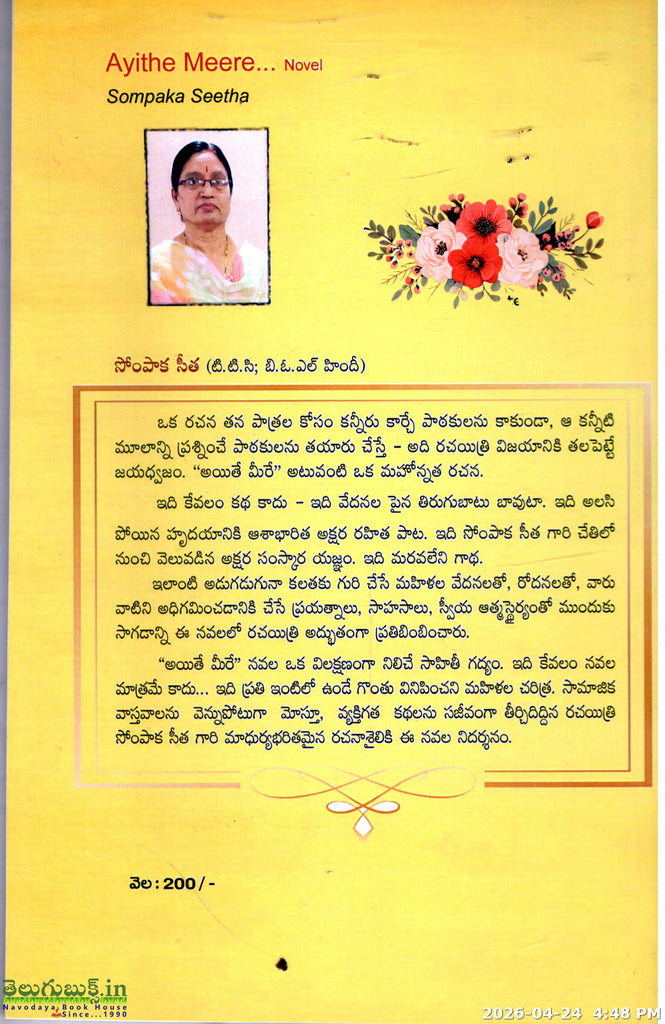 Ayithe Meere... Novel
Sompaka Seetha
సోంపాక సీత (టి.టి.సి; బి.ఓ.ఎల్ హిందీ)
ఒక రచన తన పాత్రల కోసం కన్నీరు కార్చే పాఠకులను కాకుండా, ఆ కన్నీటి
మూలాన్ని ప్రశ్నించే పాఠకులను తయారు చేస్తే – అది రచయిత్రి విజయానికి తలపెట్టే
జయధ్వజం. “అయితే మీరే” అటువంటి ఒక మహోన్నత రచన.
ఇది కేవలం కథ కాదు – ఇది వేదనల పైన తిరుగుబాటు బావుటా. ఇది అలసి
పోయిన హృదయానికి ఆశాభారిత అక్షర రహిత పాట. ఇది సోంపాక సీత గారి చేతిలో
నుంచి వెలువడిన అక్షర సంస్కార యజ్ఞం. ఇది మరవలేని గాథ.
ఇలాంటి అడుగడుగునా కలతకు గురి చేసే మహిళల వేదనలతో, రోదనలతో, వారు
వాటిని అధిగమించడానికి చేసే ప్రయత్నాలు, సాహసాలు, స్వీయ ఆత్మస్థైర్యంతో ముందుకు
సాగడాన్ని ఈ నవలలో రచయిత్రి అద్భుతంగా ప్రతిబింబించారు.
“అయితే మీరే” నవల ఒక విలక్షణంగా నిలిచే సాహితీ గద్యం. ఇది కేవలం నవల
మాత్రమే కాదు... ఇది ప్రతి ఇంటిలో ఉండే గొంతు వినిపించని మహిళల చరిత్ర. సామాజిక
వాస్తవాలను వెన్నుపోటుగా మోస్తూ, వ్యక్తిగత కథలను సజీవంగా తీర్చిదిద్దిన రచయిత్రి
సోంపాక సీత గారి మాధుర్యభరితమైన రచనాశైలికి ఈ నవల నిదర్శనం.
వెల : 200/-
తెలుగుబుక్స్.in
Navodaya Book House
Since...1990
2026-04-24 4:48 PM